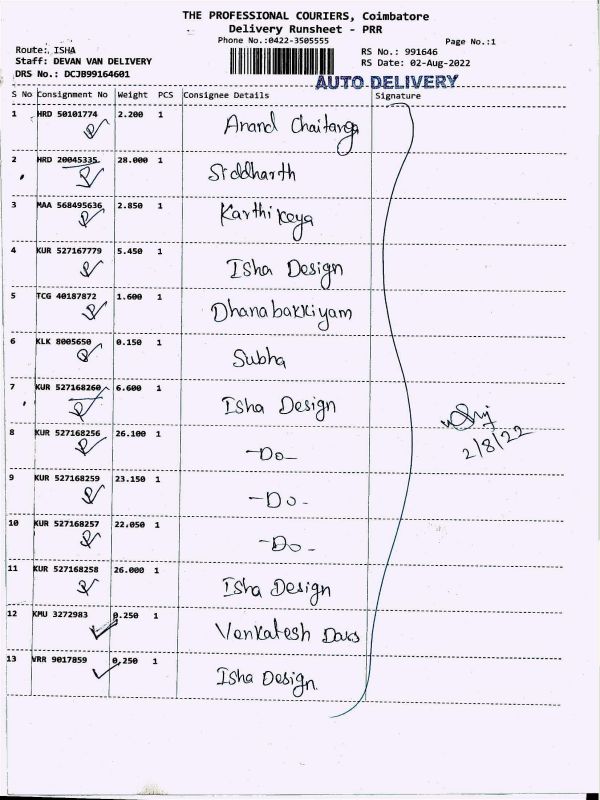 THE PROFESSIONAL COURIERS, Coimbatore
Delivery Runsheet - PRR
Phone No.:0422-3505555
Page No.:1
Route: ISHA
RS No.: 991646
Staff: DEVAN VAN DELIVERY
RS Date: 02-Aug-2022
DRS No.: DCJB99164601
AUTO DELIVERY
S No Consignment No Weight PCS Consignee Details Signature
1 HRD 50101774 2.200 1 Anand Chaitanya
2 HRD 20045335 28.000 1 Siddharth
3 MAA 568495636 2.850 1 Karthikeya
4 KUR 527167779 5.450 1 Isha Design
5 TCG 40187872 1.600 1 Dhanabakkiyam
6 KLK 8005650 0.150 1 Subha
7 KUR 527168260 6.600 1 Isha Design
8 KUR 527168256 26.100 1 -Do-
9 KUR 527168259 23.150 1 -Do-
10 KUR 527168257 22.050 1 -Do-
11 KUR 527168258 26.000 1 Isha Design
12 KMU 3272983 0.250 1 Venkatesh
13 VRR 9017859 0.250 1 Isha Design
2/8/22